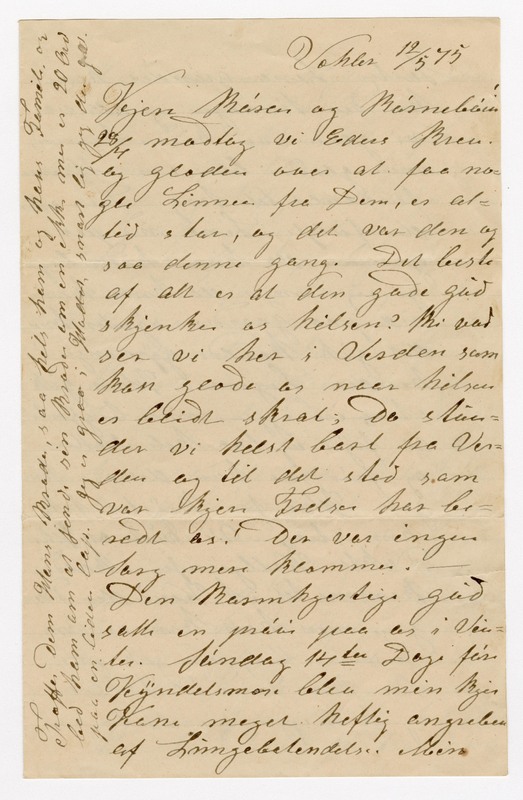 Vohler 12/5 75
Kjere Rasen og Rasmebáin
28/4 modtog vi Eders Brev.
og gloden over at faa no=
gle Linner fra Dem, er al=
tid stor, og det var den og
saa denne gang. Det beste
af alt er at den gode gúd
skjenker os helsen? thi vad
ser vi her i Verden som
kan glode os naar helsen
er bleidt skral; Da stún=
der vi helst bort fra Ver=
den og til det sted som
var kjere Frelser har be=
redt os! Der var ingen
sorg mere kommer. —
Den Barmhjertige gúd
satte en práis paa os i Vin=
ter. Söndag 14de Dage för
Kÿndelsmose blev min kjere
Kone meget heftig angreben
af Lúngebetendelse. Min
Treffer dem Hans Skrader, saa hels ham og hans Famili. og
bed ham om at sende sen Broder om en ikke mer en 20 Ord
paa en liden Lap. Jeg er graa i Hodet, snart lig jeg den gl.